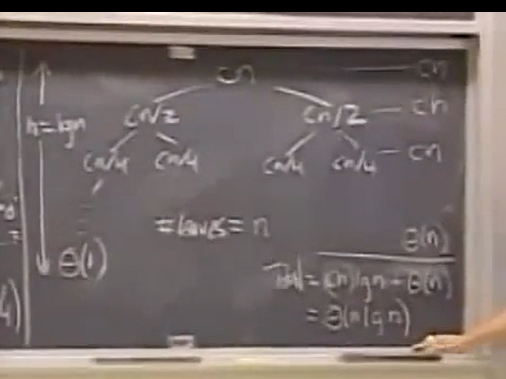 cn — cn
h=lgn cn/2 cn/2 — cn
cn/4 cn/4 cn/4 cn/4 — cn
#leaves = n
Θ(1) Θ(n)
Total = (cn)lgn + Θ(n)
= Θ(n lg n)